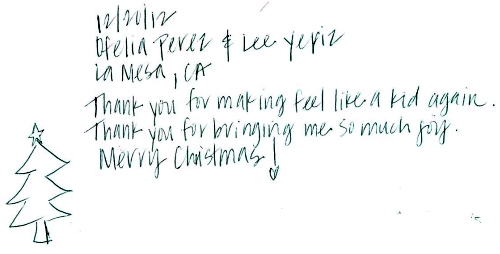 12/20/12
Ofelia Perez & Lee Yepiz
La Mesa, CA
Thank you for making feel like a kid again.
Thank you for bringing me so much joy.
Merry Christmas!